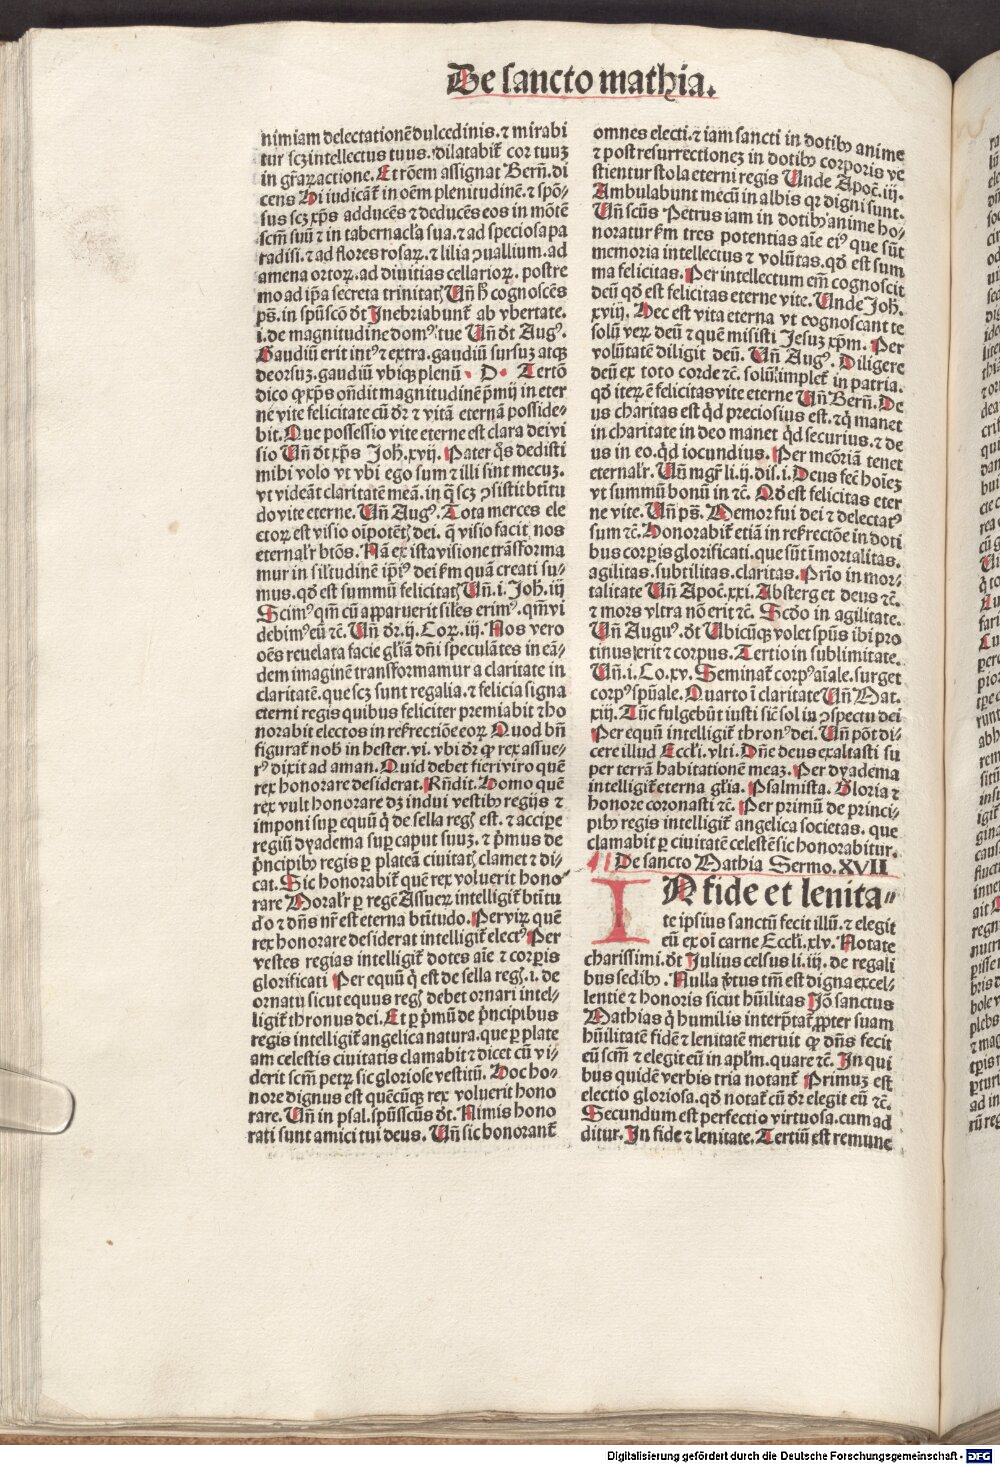 De sancto mathia.
nimiam delectationē dulcedinis. ⁊ mirabi
tur scꝫ intellectus tuus. dilatabit̄ cor tuuꝫ
in gr̄aꝝ actione. Et rōem assignat Bern̄. di
cens Hi iudicāt̄ in oēm plenitudinē. ⁊ spōn⸗
sus scꝫ xp̄s adducēs ⁊ deducēs eos in mōtē
scm̄ suū ⁊ in tabernacl̄a sua. ⁊ ad speciosa pa
radisi. ⁊ ad flores rosaꝝ. ⁊ lilia ↄuallium. ad
amena ortoꝝ. ad diuitias cellarioꝝ. postre
mo ad ip̄a secreta trinitatꝭ Vn̄ h̄ cognoscēs
ps̄. in spūscō dt̄ Inebriabunt̄ ab vbertate.
i. de magnitudine domꝰ tue Vn̄ dt̄ Augꝰ.
Gaudiū erit intꝰ ⁊ extra. gaudiū sursuꝫ atqꝫ
deorsuꝫ. gaudiū vbiqꝫ plenū. D. Tertō
dico ꝙ xp̄s on̄dit magnitudinē p̄mij in eter
ne vite felicitate cū dr̄ ⁊ vitā eternā posside⸗
bit. Que possessio vite eterne est clara dei vi
sio Vn̄ dt̄ xp̄s Joh̄. xvij. Pater qͦs dedisti
mihi volo vt vbi ego sum ⁊ illi sint mecuꝫ.
vt videāt claritatē meā. in q̄ scꝫ ↄsistit bt̄itu
do vite eterne. Vn̄ Augꝰ. Tota merces ele
ctoꝝ est visio oīpotētꝭ dei. q̄ visio facit nos
eternalr̄ bt̄os. Nā ex ista visione trāsforma
mur in sil̄itudinē ip̄iꝰ dei ẜm quā creati su⸗
mus. qd̄ est summū felicitatꝭ Vn̄. i. Joh̄. iij
Scimꝰ qm̄ cū apparuerit sil̄es erimꝰ. qm̄ vi
debimꝰ eū ⁊c̄. Vn̄ dr̄. ij. Coꝝ. iij. Nos vero
oēs reuelata facie gl̄iā dn̄i speculātes in eā⸗
dem imaginē transformamur a claritate in
claritatē. que scꝫ sunt regalia. ⁊ felicia signa
eterni regis quibus feliciter premiabit ⁊ ho
norabit electos in resurrectiōe eoꝝ Quod bn̄
figurat̄ nob̄ in hester. vi. vbi dr̄ ꝙ rex assue⸗
rꝰ dixit ad aman. Quid debet fieri viro quē
rex honorare desiderat. Rn̄dit. Homo quē
rex vult honorare dꝫ indui vestibꝫ regijs ⁊
imponi sup̄ equū q̄ de sella regꝭ est. ⁊ accip̄e
regiū dyadema super caput suuꝫ. ⁊ p̄mus de
p̄ncipibꝫ regis per plateā ciuitatꝭ clamet ⁊ di⸗
cat. Sic honorabit̄ quē rex voluerit hono⸗
rare Moralr̄ per regē Assueꝝ intelligit̄ bt̄itu
do ⁊ dn̄s nr̄ est eterna bt̄itudo. Per viꝝ quē
rex honorare desiderat intelligit̄ electꝰ Per
vestes regias intelligit̄ dotes aīe ⁊ corp̄is
glorificati Per equū q̄ est de sella regꝭ. i. de
ornatu sicut equus regꝭ debet ornari intel⸗
ligit̄ thronus dei. Et per p̄mū de p̄ncipibus
regis intelligit̄ angelica natura. que per plate
am celestis ciuitatis clamabit ⁊ dicet cū vi⸗
derit scm̄ petꝝ sic gloriose vestitū. Hoc ho⸗
nore dignus est quēcūqꝫ rex voluerit hono
rare. Vn̄ in psal. spūsscūs dt̄. Nimis hono
rati sunt amici tui deus. Vn̄ sic honorant̄
omnes electi. ⁊ iam sancti in dotibꝫ anime
⁊ post resurrectioneꝫ in dotibꝫ corporis ve
stientur stola eterni regis Vnde Apoc̄. iij.
Ambulabunt mecū in albis qꝛ digni sunt.
Vn̄ scūs Petrus iam in dotibꝫ anime ho⸗
noratur ẜm tres potentias aīe eiꝰ que sūt
memoria intellectus ⁊ volūtas. qd̄ est sum
ma felicitas. Per intellectum em̄ cognoscit
deū qd̄ est felicitas eterne vite. Vnde Joh̄.
xviij. Hec est vita eterna vt cognoscant te
solū veꝝ deū ⁊ quē misisti Jesuꝫ xp̄m. Per
volūtatē diligit deū. Vn̄ Augꝰ. Diligere
deū ex toto corde ⁊c̄. solū implet̄ in patria.
qd̄ iteꝝ ē felicitas vite eterne Vn̄ Bern̄. De
us charitas est qͥd preciosius est. ⁊ q̄ manet
in charitate in deo manet qͥd securius. ⁊ de
us in eo. qͥd iocundius. Per meōriā tenet
eternalr̄. Vn̄ mgr̄ li. ij. dis. i. Deus fec̄ hoīeꝫ
vt summū bonū in ⁊c̄. Qd̄ est felicitas eter
ne vite. Vn̄ ps̄. Memor fui dei ⁊ delectatꝰ
sum ⁊c̄. Honorabit̄ etiā in resurrectōe in doti
bus corp̄is glorificati. que sūt īmortalitas.
agilitas. subtilitas. claritas. Prīo in mor⸗
talitate Vn̄ Apoc̄. xxi. Absterget deus ⁊c̄.
⁊ mors vltra nō erit ⁊c̄. Scd̄o in agilitate.
Vn̄ Auguꝰ. dt̄ Vbicūqꝫ volet spūs ibi pro
tinus erit ⁊ corpus. Tertio in sublimitate.
Vn̄. i. Co. xv. Seminat̄ corpꝰ aīale. surget
corpꝰ spūale. Quarto ī claritate Vn̄ Mat.
xiij. Tūc fulgebūt iusti sic̄ sol in ↄspectu dei
Per equū intelligit̄ thronꝰ dei. Vn̄ pōt di⸗
cere illud Eccl̄i. vlti. Dn̄e deus exaltasti su
per terrā habitationē meaꝫ. Per dyadema
intelligit̄ eterna gl̄ia. Psalmista. Gloria ⁊
honore coronasti ⁊c̄. Per primū de princi⸗
pibꝫ regis intelligit̄ angelica societas. que
clamabit per ciuitatē celestē sic honorabitur.
De sancto Mathia Sermo. XVII
IN fide et lenita⸗
te ipsius sanctū fecit illū. ⁊ elegit
eū ex oī carne Eccl̄i. xlv. Notate
charissimi. dt̄ Julius celsus li. iij. de regali
bus sedibꝫ. Nulla v̄tus tm̄ est digna excel⸗
lentie ⁊ honoris sicut hūilitas Jō sanctus
Mathias q̄ humilis interp̄tat̄ propter suam
hūilitatē fidē ⁊ lenitatē meruit ꝙ dn̄s fecit
eū scm̄ ⁊ elegit eū in apl̄m. quare ⁊c̄. In qui
bus quidē verbis tria notant̄ Primuꝫ est
electio gloriosa. qd̄ notat̄ cū dr̄ elegit eū ⁊c̄.
Secundum est perfectio virtuosa. cum ad
ditur. In fide ⁊ lenitate. Tertiū est remune
Digitalisierung gefördert durch die Deutsche Forschungsgemeinschaft - DFG